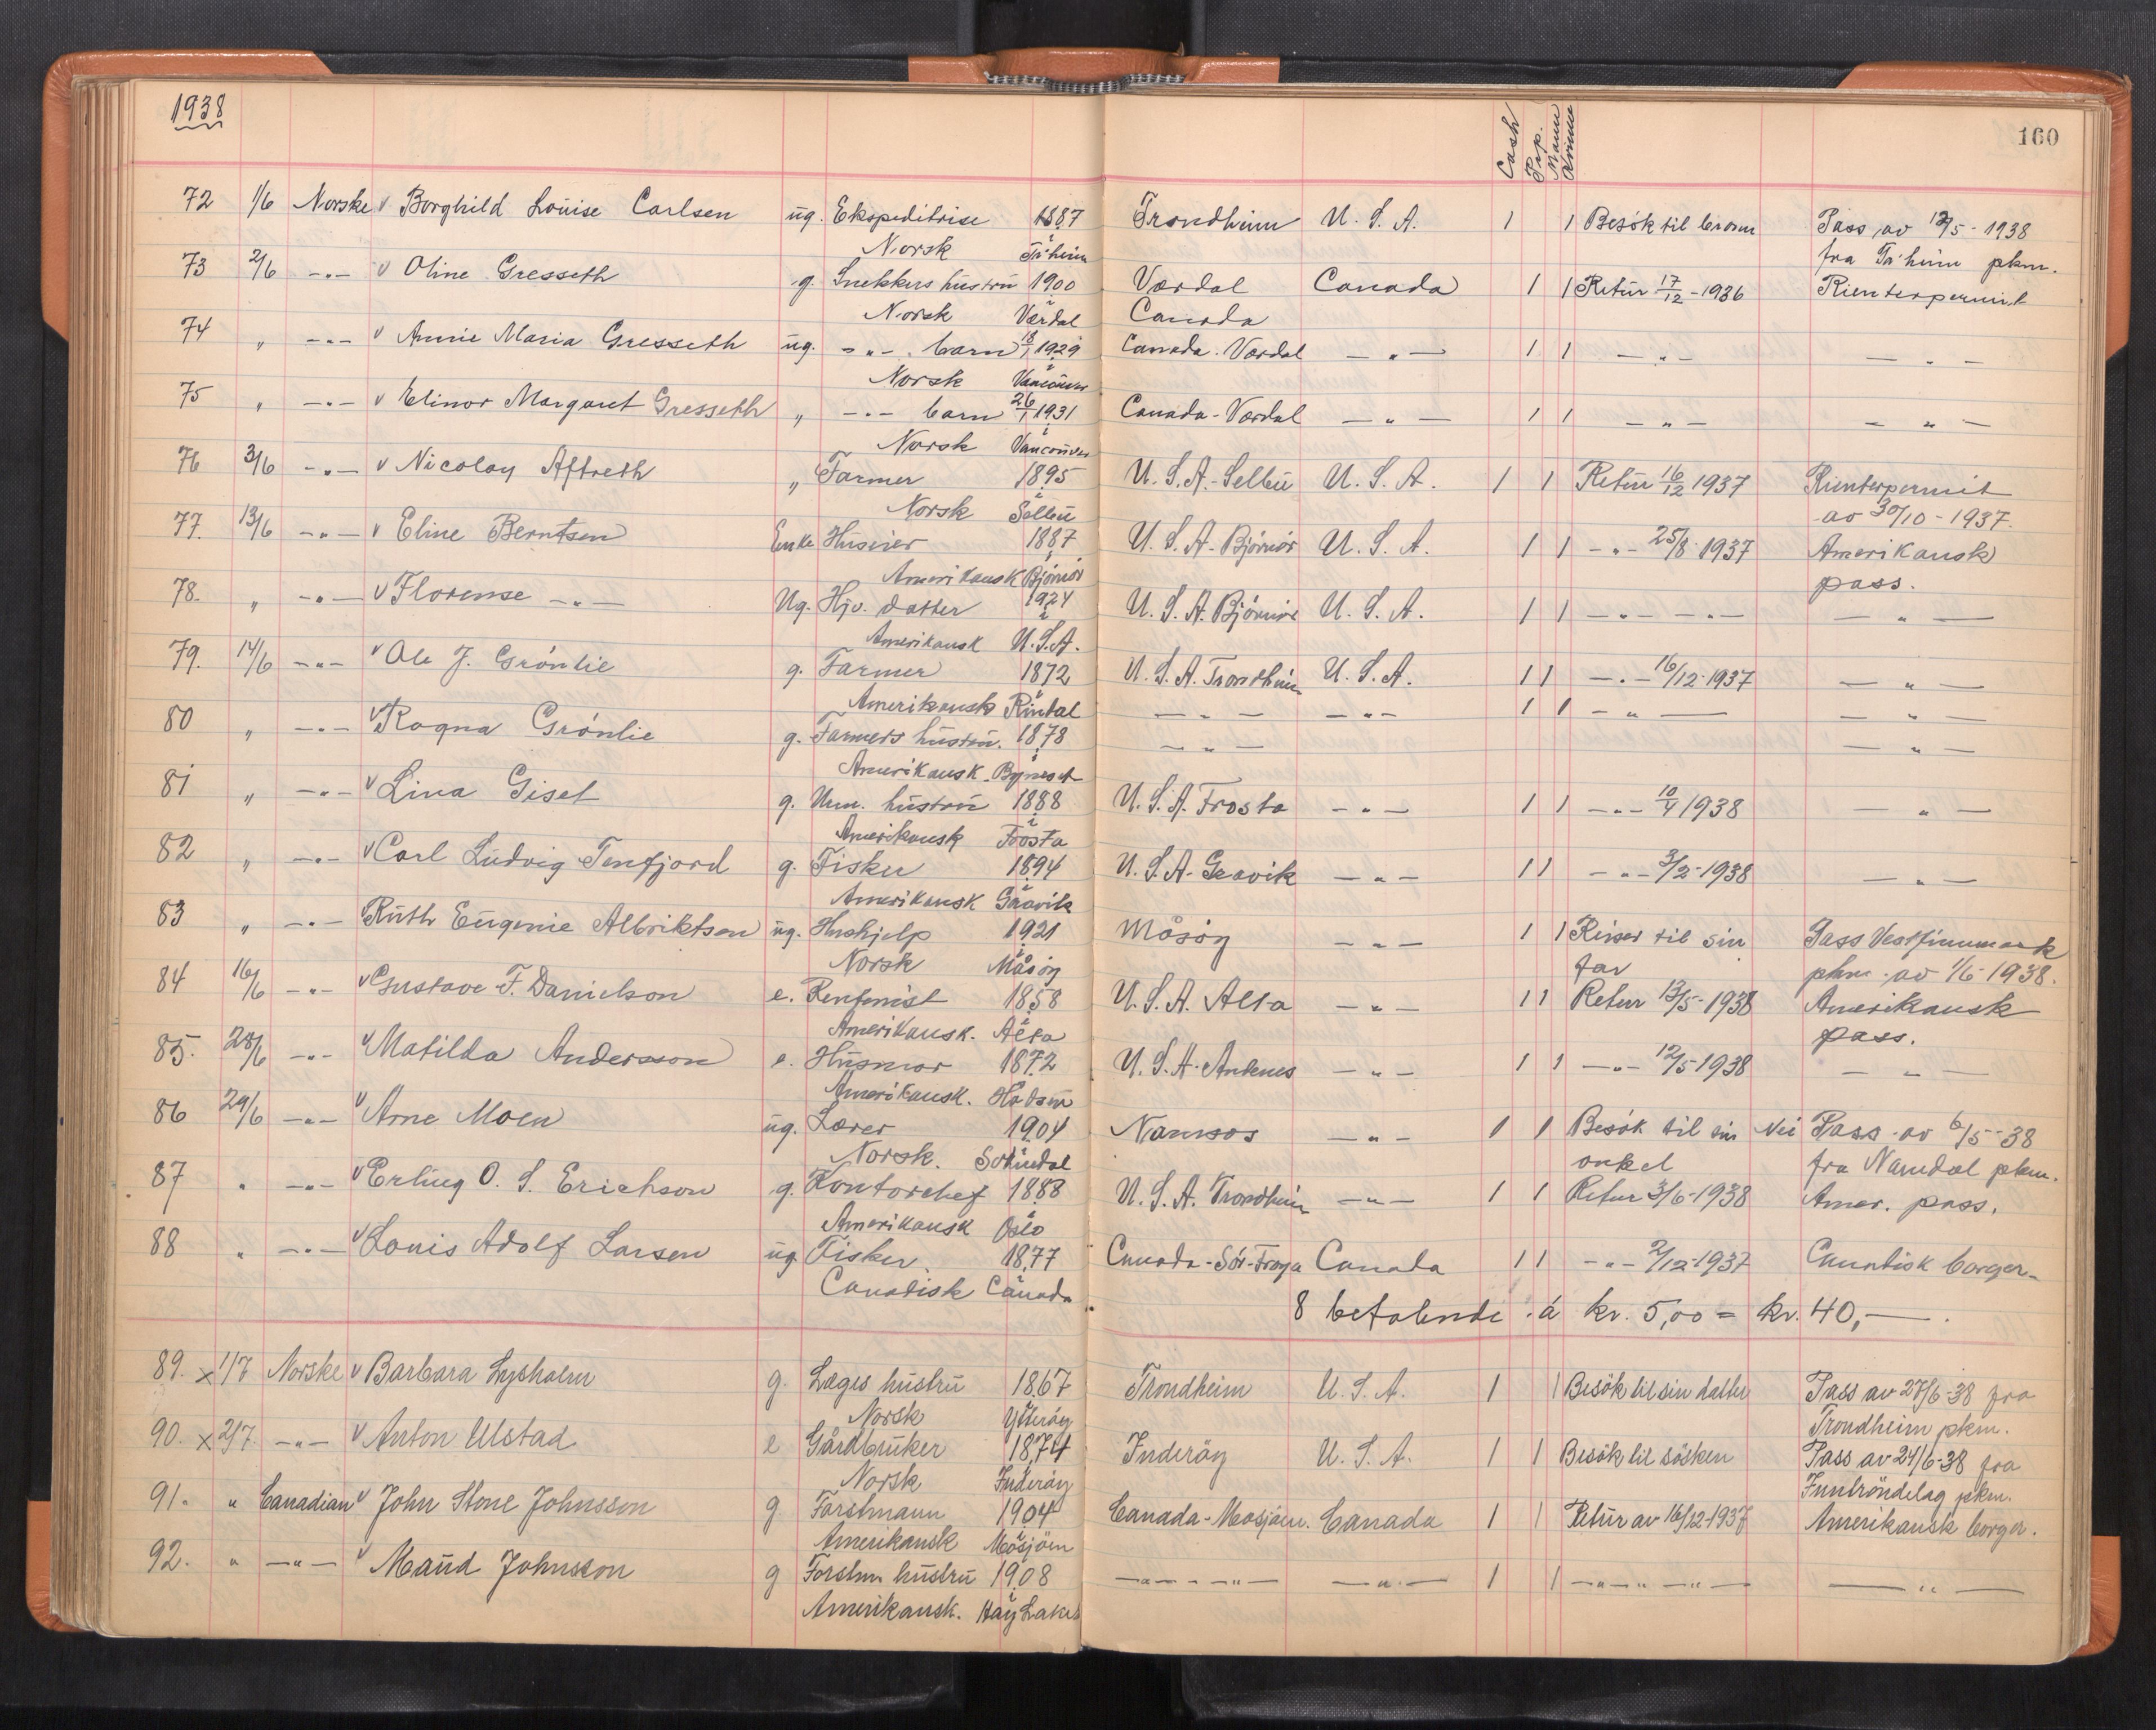 1938
Cash Prp. Mann Kvinne
160
72 1/6 Norske v Borghild Louise Carlsen ug. Ekspeditrise 1887 Trondheim U.S.A. 1 1 Besök til Pass av 12/5-1938
Norsk i Tr.heim fra Tr.heim pkm.
73 2/6 -"- v Oline Gresseth g. Snekkers hustru 1900 Værdal Canada 1 1 Retur 17/12-1936 Rienterpermit
Norsk i Værdal Canada
74 " -"- v Annie Maria Gresseth ug. -"- barn 18/1 1929 Canada. Værdal -"- 1 1 -"- -"-
Norsk i Vancouver
75 " -"- v Elinor Margaret Gresseth " -"- barn 26/1 1931 Canada-Værdal -"- 1 1 -"- -"-
Norsk i Vancouver
76 3/6 -"- v Nicolay Aftreth " Farmer 1895 U.S.A.-Selbu U.S.A. 1 1 Retur 16/12 1937 Rienterpermit
Norsk i Selbu av 30/10-1937.
77. 13/6 -"- v Eline Berntsen Enke Huseier 1887 U.S.A-Björnör U.S.A. 1 1 -"- 25/8-1937 Amerikansk
Amerikansk i Björnör pass.
78. " -"- v Florense -"- Ug. Hjv. datter 1924 U.S.A. Björnör U.S.A. 1 1 -"- -"- -"-
Amerikansk i U.S.A.
79. 14/6 -"- v Ole J. Grönlie g. Farmer 1872 U.S.A. Trondheim U.S.A. 1 1 -"- 16/12-1937 -"-
Amerikansk i Rindal -"- -"- 1 1 -"- -"-
80 " -"- v Ragna Grönlie g. Farmers hustru. 1878 -"- -"-
Amerikansk. i Byneset
81 " -"- v Lina Giset g. hustru 1888 U.S.A. Frosta -"- 1 1 -"- 10/4 1938 -"-
Amerikansk i Frosta
82 " -"- v Carl Ludvig Tenfjord g. Fisker 1894 U.S.A- Gravik -"- 1 1 -"- 3/2-1938 -"-
Amerikansk i Gravik
83 " -"- Ruth Eugenie Albriktsen ug. Hushjelp 1921 Måsöy -"- 1 1 Reiser til sin Pass Vestfinnmark
Norsk i Måsöy far pkm. av 1/6-1938.
84 16/6 -"- v Gustave F. Danielson e. Rentenist 1858 U.S.A. Alta -"- 1 1 Retur 13/5-1938 Amerikansk
Amerikansk. i Alta pass.
85. 28/6 -"- v Matilda Andersson e. Husmor 1872 U.S.A. Andenes -"- 1 1 -"- 12/5-1938 -"-
Amerikansk. i Hadsel
86 29/6 -"- v Arne Moen ug. Lærer 1904 Namsos -"- 1 1 Besök til sin Nei Pass av 6/5-38
Norsk. i onkel fra Namdal pkm.
87 " -"- v Erling O. S. Erichson g. Kontorchef 1888 U.S.A. Trondheim -"- 1 1 Retur 3/6-1938 Amer. pass.
Amerikansk i Oslo
88 " -"- v Louis Adolf Larsen ug Fisker. 1877 Canada-Sör-Fröya Canada 1 1 -"- 2/12-1937 Canadisk borger.
Canadisk i Canada
8 betalende á kr. 5,00 = kr. 40,—.
89. x 1/7 Norske v Barbara Lysholm g. Læges hustru 1867 Trondheim U.S.A. 1 1 Besök til sin datter Pass av 27/6-38 fra
Norsk i Ytteröy Trondheim pkm.
90. x 2/7 -"- v Anton Ulstad e Gårdbruker 1874 Inderöy U.S.A. 1 1 Besök til sösken Pass av 24/6-38 fra
Norsk i Inderöy Inntröndelag pkm.
91. " Canadian v John Stone Johnsson g Forstmann 1904 Canada-Mosjöen. Canada 1 1 Retur av 16/12-1937 Amerikansk borger.
Amerikansk i Mosjöen
92. " -"- v Maud Johnsson g Forstm. hustru 1908 -"- -"- -"- 1 1 -"- -"- -"-
Amerikansk. i Hay Lakes